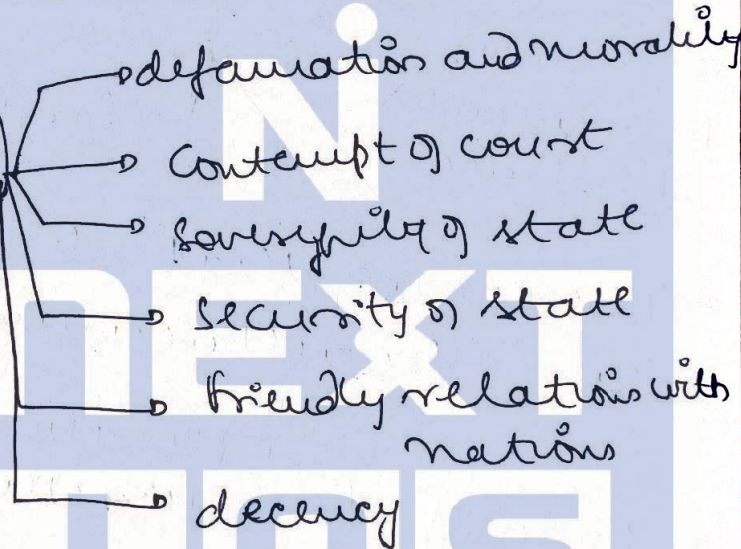 defamation and morality
Contempt of court
sovereignity of state
security of state
friendly relations with
nations
decency
NEXT
IAS